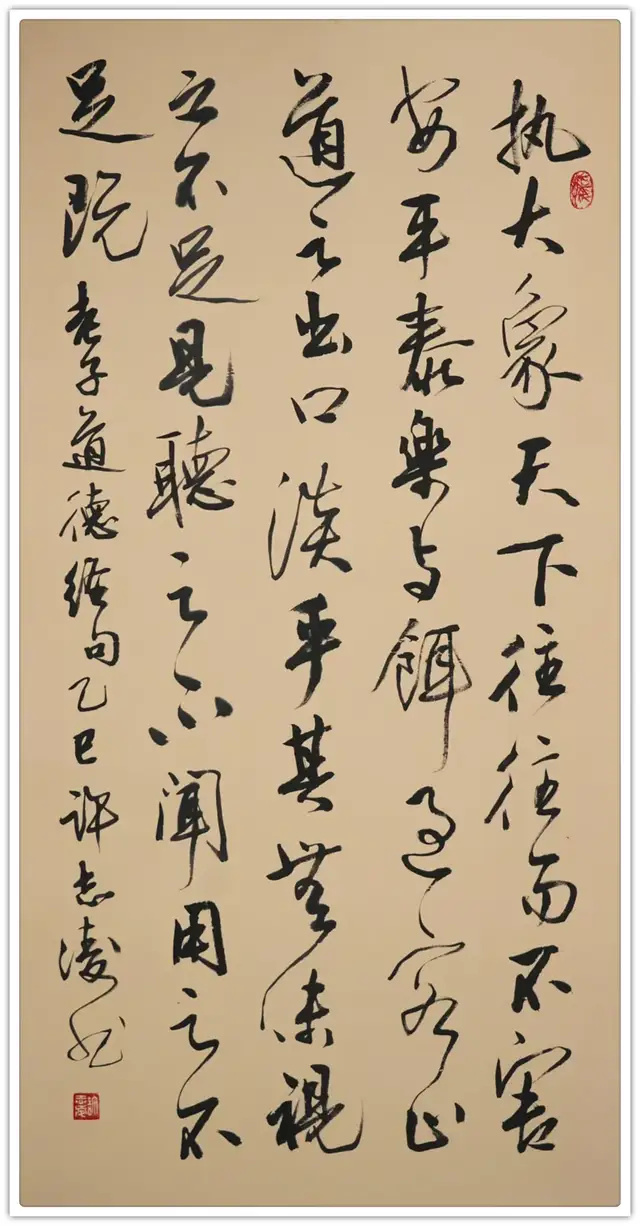 执大象天下往往而不害
安平泰樂与餌過客止
道之出口淡乎其無味視
之不足見聽之不聞用之不
足既 老子道德经句乙巳许志凌书